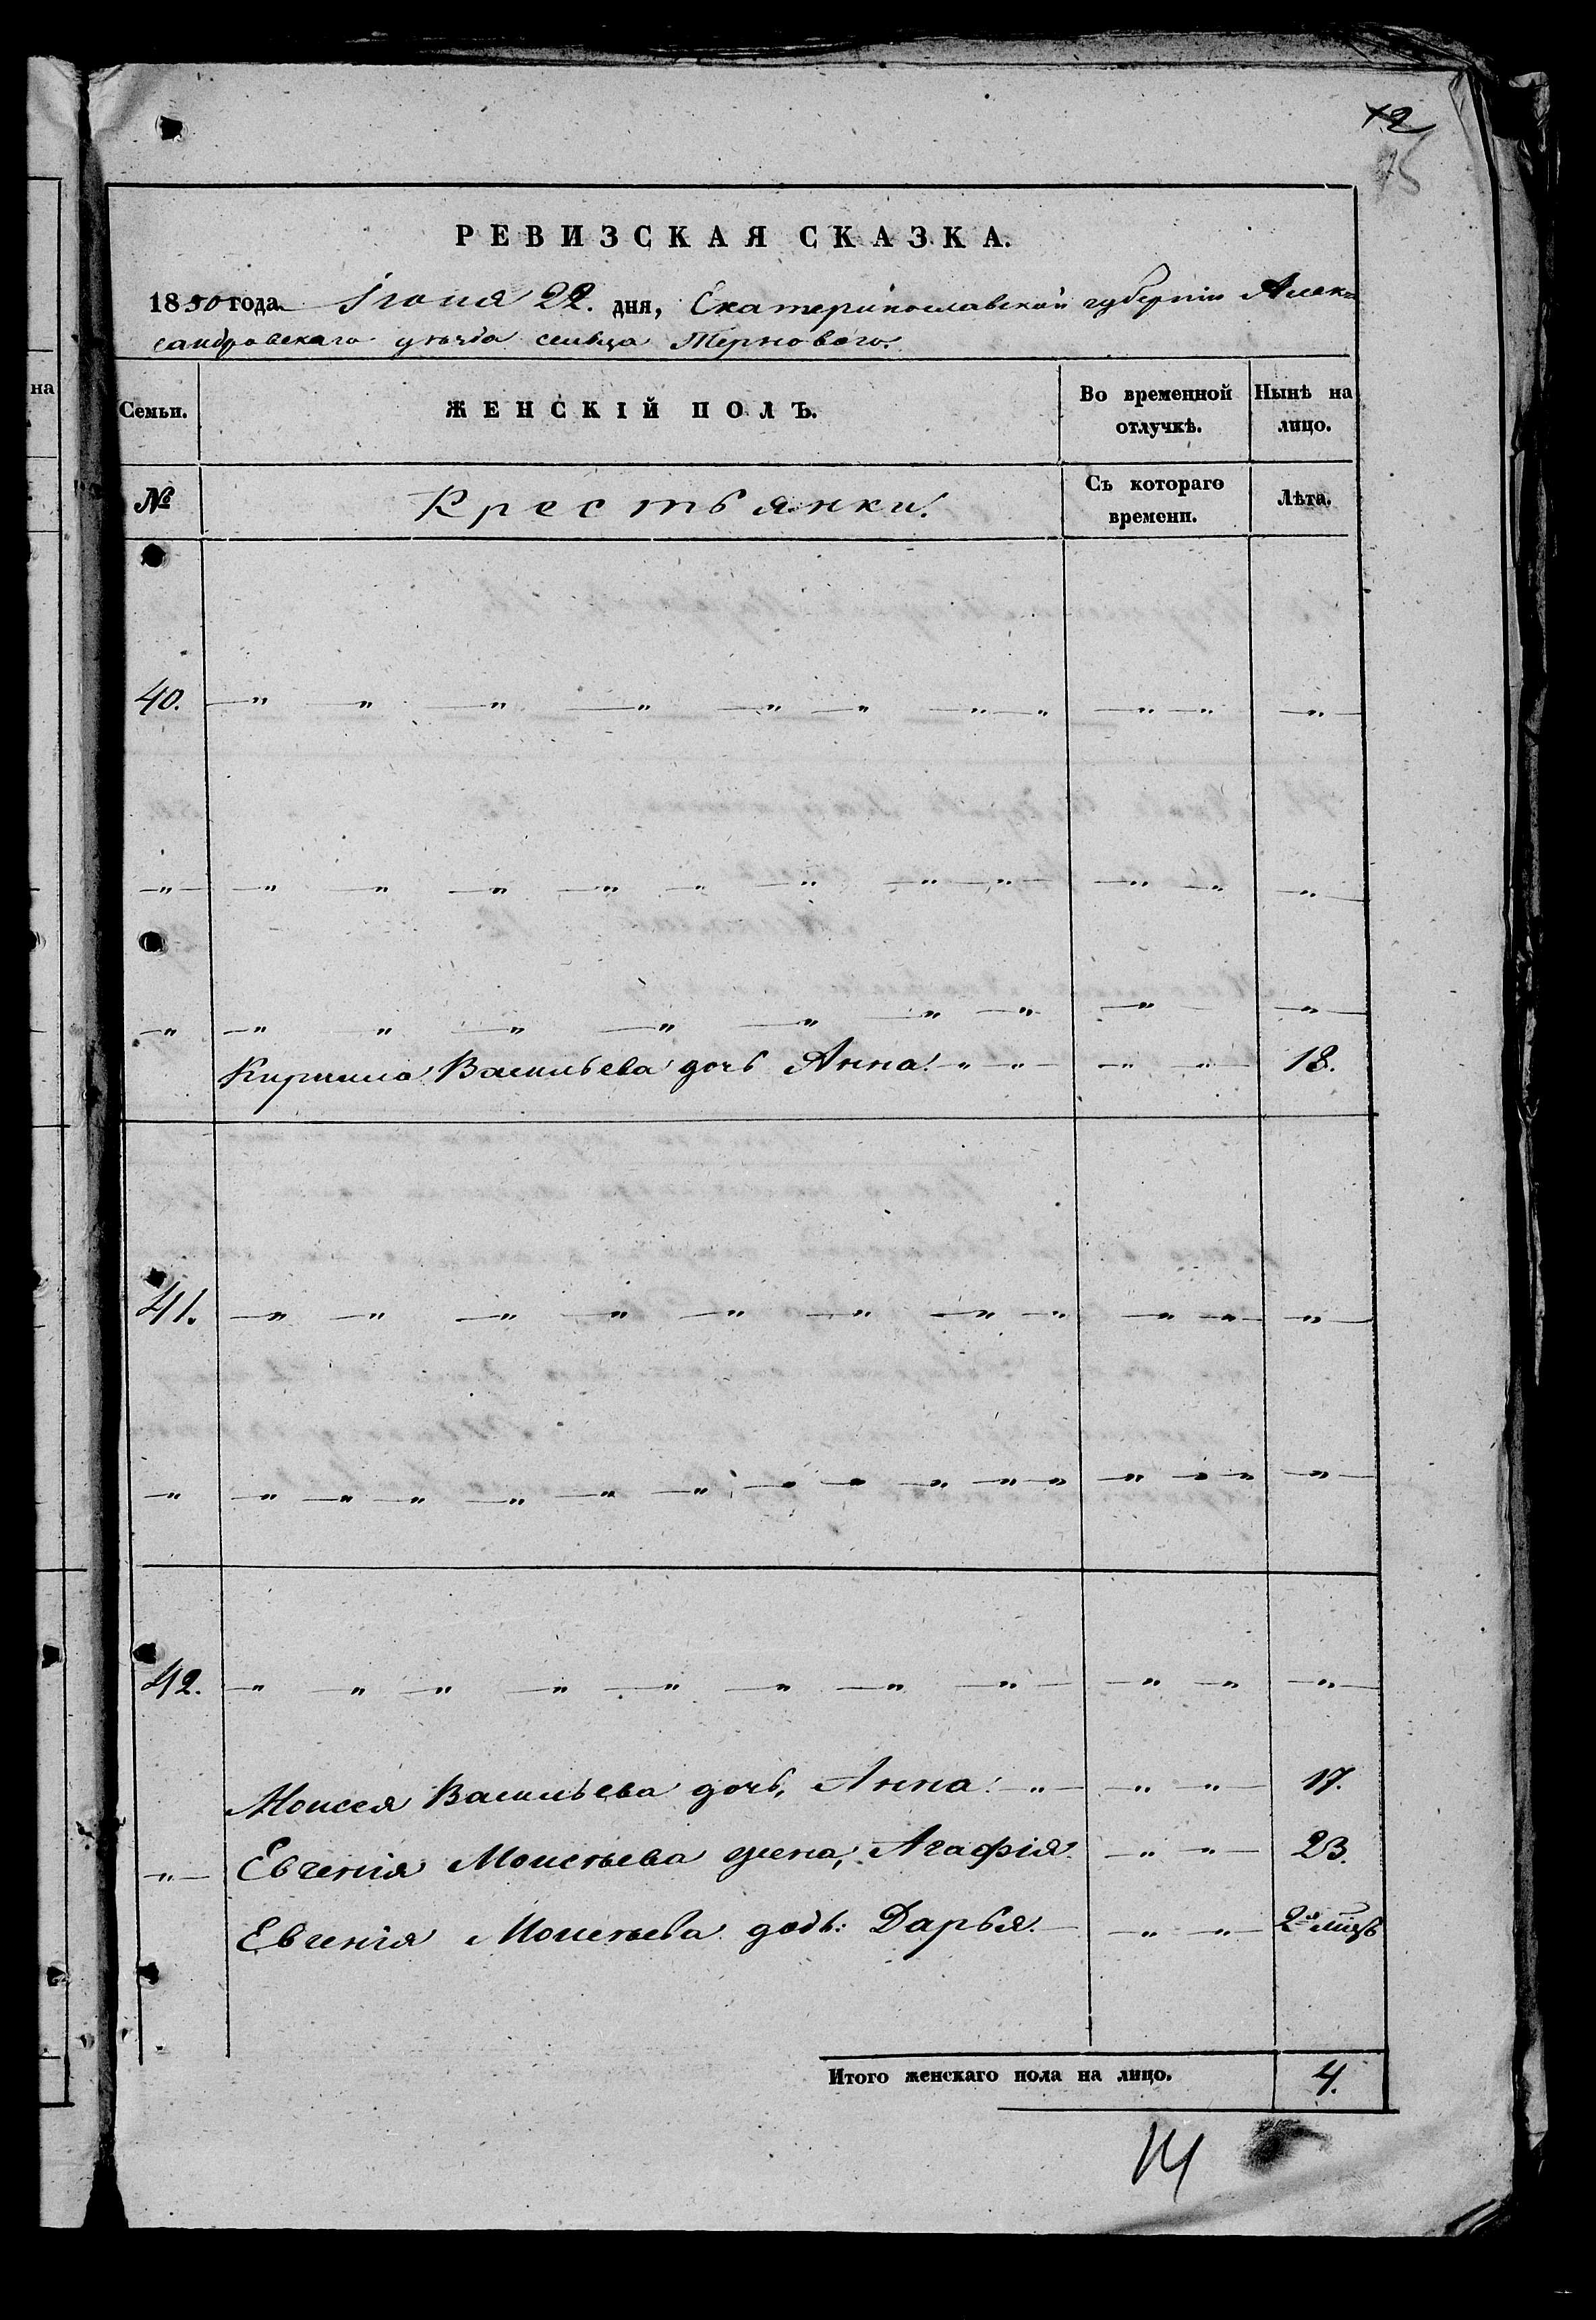 12
75
РЕВИЗСКАЯ СКАЗКА.
1850 года Iюня 22. дня, Екатеринославской губернiи Алек-
сандровскаго уѣзда сельца Терноваго.
на
Семьи. ЖЕНСКІЙ ПОЛЪ. Во временной отлучкѣ. Нынѣ на лицо.
№ Крестьянки. Съ котораго времени. Лѣта.
40. —„ —„ —„ —„ —„ —„ —„ —„ —„ —„ —„
—„ —„ —„ —„ —„ —„ —„ —„ —„ —„ —„ —„
—„ —„ —„ —„ —„ —„ —„ —„ —„ —„
Кирила Васильева дочь Анна. —„ —„ —„ —„ 18.
41. —„ —„ —„ —„ —„ —„ —„ —„ —„ —„ —„
—„ —„ —„ —„ —„ —„ —„ —„ —„ —„ —„ —„ —„ —„ —„ —„
42. —„ —„ —„ —„ —„ —„ —„ —„ —„ —„ —„
Моисея Васильева дочь, Анна. —„ —„ —„ 17.
—„ Евгенiя Моисѣева жена, Агафiя. —„ —„ 23.
Евгенiя Моисѣева дочь: Дарья. —„ —„ 2 мѣсц
Итого женскаго пола на лицо. 4.
14